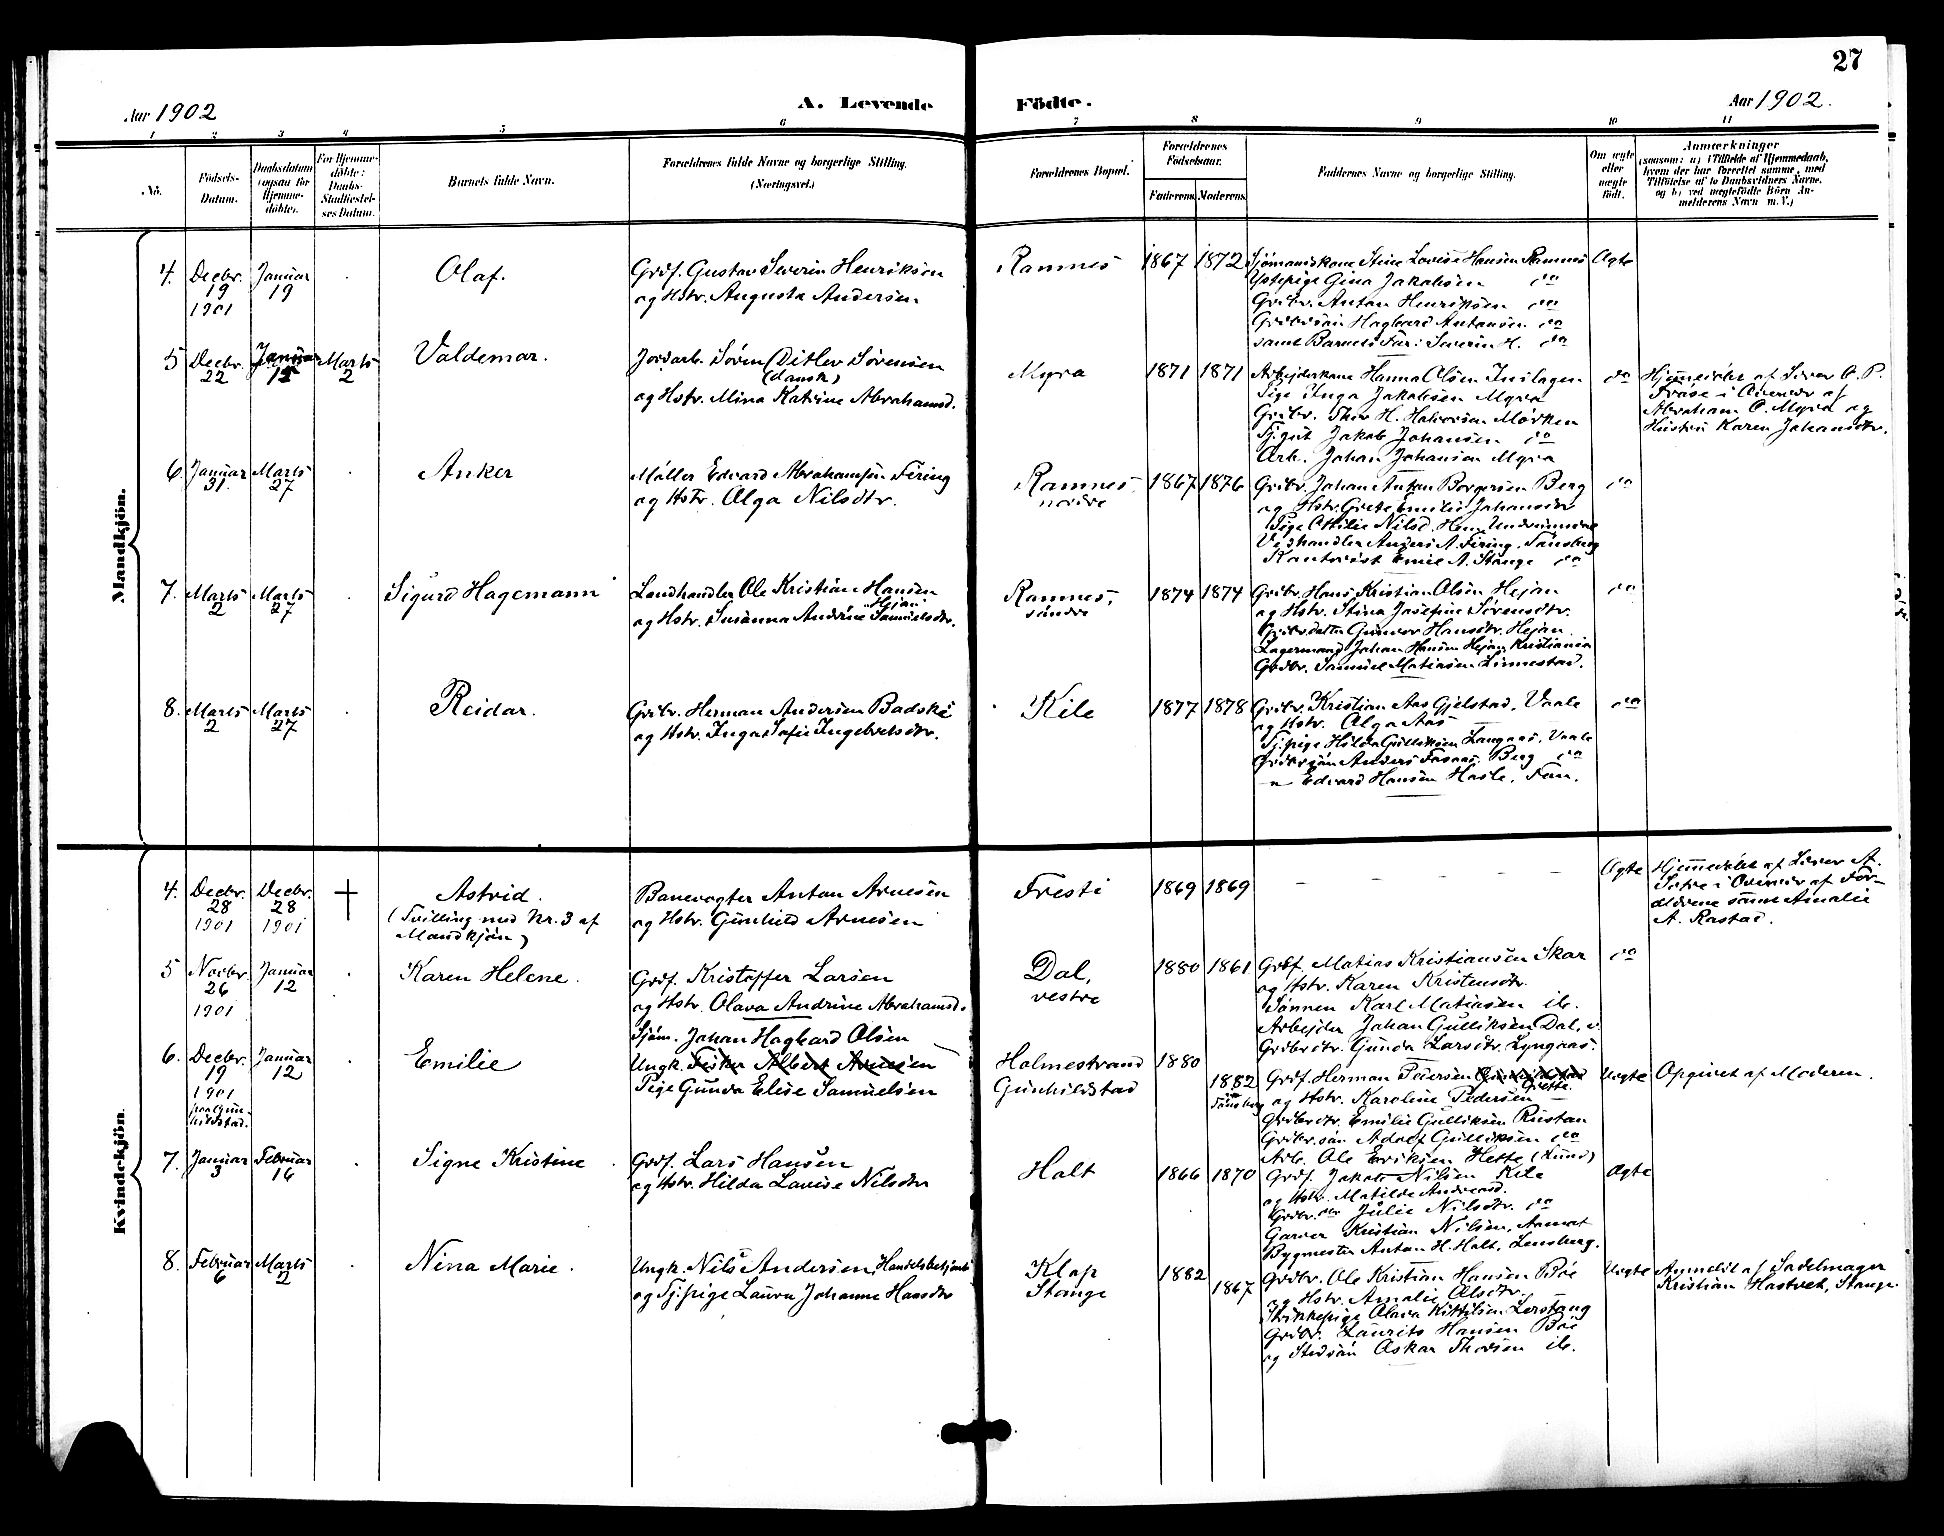 27
Aar 1902
A. Levende
Födte.
Aar 1902.
1 2 3 4 5 6 7 8 9 10 11
No.
Födsels-
Datum.
Daabsdatum
(ogsaa for
Hjemme-
döbte).
For Hjemme-
döbte:
Daabs-
Stadfæstel-
ses Datum.
Barnets fulde Navn.
Forældrenes fulde Navne og borgerlige Stilling.
(Næringsvei.)
Forældrenes Bopæl.
Forældrenes
Födselsaar.
Faderens Moderens
Faddernes Navne og borgerlige Stilling.
Om ægte
eller
uægte
födt.
Anmærkninger
(saasom: a) i Tilfælde af Hjemmedaab,
hvem der har forrettet samme, med
Tilföielse af to Daabsvidners Navne,
og b) ved uægtefödte Börn An-
melderens Navn m. V.)
Mandkjön.
4. Decbr. 19 1901
Januar 19
Olaf.
Grdf. Gustav Severin Henriksen
og Hstr. Augusta Andersen
Ramnes
1867 1872
Sjömandskone Stine Lovise Hansen Ramnes
Ystepige Gina Jakobsen do
Grdbr. Anton Henriksen do
Grdbrsön Hagbard Antonsen do
samt Barnets Far: Severin H. do
Ægte
5 Decbr. 22
Januar 12
Marts 2
Valdemar.
Jordarb. Sören Ditlev Sørensen
(dansk)
og Hstr. Mina Katrine Abrahamsd.
Myra
1871 1871
Arbejderkone Hanna Olsen
Pige Inga Jakobsen Myra
Grdbr. Thor H. Halvorsen Mörken
Tj.gut Jakob Johansen do
Arb. Johan Johansen Myra
do
Hjemmedöbt af Lærer O. P.
i Overvær af
Abraham O. Myra og
Hustru Karen Johansdtr.
6 Januar 31.
Marts 27
Anker
Möller Edvard Abrahamsen Firing
og Hstr. Olga Nilsdtr.
Ramnes
nordre
1867 1876
Grdbr. Johan Anton Borgersen Berg
og Hstr. Grete Emilie Johansdtr
Pige Ottilie Nilsd. Hem
Vedhandler Anders A. Firing, Tönsberg
Emil A. Stange do
do
7. Marts 2
Marts 27
Sigurd Hagemann
Landhandler Ole Kristian Hansen
"Hejan"
og Hstr. Susanna Andrine Samuelsdtr.
Ramnes,
söndre
1874 1874
Grdbr. Hans Kristian Olsen Hejan
og Hstr. Stina Josefine Sörensdtr.
Grdbr.datter Gunvor Hansdtr. Hejan.
Lagermand Johan Hansen Hejan Kristiania
Grdbr. Samuel Matiasen Linnestad.
do
8. Marts 2
Marts 27
Reidar.
Grdbr. Herman Andersen Badské
og Hstr. Inga Sofie Ingebretsdtr.
Kile
1877 1878
Grdbr. Kristian Aas Gjelstad, Vaale
og Hstr. Olga Aas
Tj.pige Hilda Gulliksen Langaas, Vaale
Grdbrsön Anders Berg do
" Edvard Hansen Hasle, Fon.
do
Kvindekjön.
4. Decbr. 28 1901
Decbr. 28 1901
†
Astrid.
(Tvilling med Nr. 3 af
Mandkjön)
Banevogter Anton Arnesen
og Hstr. Gunhild Arnesen
Fresti
1869 1869
– – – – –
Ægte
Hjemmedöbt af Lærer A.
i Overvær af For-
ældrene samt Amalie
A. Rastad.
5 Novbr. 26 1901
Januar 12
Karen Helene.
Grdf. Kristoffer Larsen
og Hstr. Olava Andrine Abrahamsd.
Dal,
vestre
1880 1861
Grdf. Matias Kristiansen Skar
og Hstr. Karen Kristensdtr.
Sönnen Karl Matiasen ib.
Arbejder Johan Gulliksen Dal, v.
Grdbrdtr. Gunda Larsdtr. Lyngaas.
do
6. Decbr. 19 1901
paa Gun-
hildstad.
Januar 12
Emilie
Sjöm. Johan Hagbard Olsen
Ungk. Fisker Albert Arnesen
Pige Gunda Elise Samuelsen
Holmestrand
Gunhildstad
1880
1882
Tönsberg
Grdf. Herman Petersen
og Hstr. Karoline Pedersen
Grdbrdtr. Emilie Gulliksen Rustan
Grdbr.sön Adolf Gulliksen do
Arb. Ole Eriksen Hette (Lund)
Uægte
Opgivet af Moderen.
7. Januar 3
Februar 16
Signe Kristine
Grdf. Lars Hansen
og Hstr. Hilda Lovise Nilsdtr
Holt
1866 1870
Grdf. Jakob Nilsen Kile
og Hstr. Matilde Andreasd.
Grdbr. dtr Julie Nilsdtr. do
Garver Kristian Nilsen,
Bygmester Anton H. Holt, Lensberg.
Ægte
8. Februar 6
Marts 2
Nina Marie.
Ungk. Nils Andersen, Handelsbetjent
og Tj.pige Laura Johanne Hansdtr
Klop
Stange
1882
1867
Grdbr. Ole Kristian Hansen Böe
og Hstr. Amalie Olsdtr.
Strikkepige Olava Kittilsen Lerstang
Grdbr. Laurits Hansen Böe
og Stedsön Oskar Thorsen ib.
Uægte
Anmeldt af Sadelmager
Kristian Hostvet, Stange.